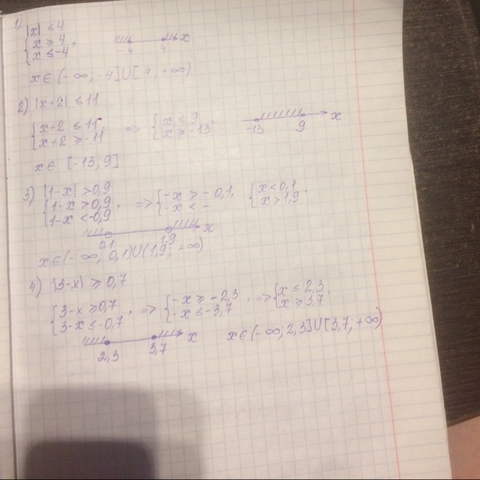 1)
|x| ≤ 4
{ x ≥ 4
x ≤ -4
4 4 x
x ∈ (-∞, -4] U [4, -∞)
2) |x+2| ≤ 11
{ x+2 ≤ 11
x+2 ≥ -11
=> { x ≤ 9
x ≥ -13
-13 9 x
x ∈ [-13, 9]
3) |1-x| > 0,9
{ 1-x > 0,9
1-x < -0,9
=> { -x > -0,1
-x < -
{ x < 0,1
x > 1,9
0,1 1,9 x
x ∈ (-∞, 0,1) U (1,9, +∞)
4) |3-x| ≥ 0,7
{ 3-x ≥ 0,7
3-x ≤ -0,7
=> { -x ≥ -2,3
-x ≤ -3,7
=> { x ≤ 2,3
x ≥ 3,7
2,3 3,7 x
x ∈ (-∞, 2,3] U [3,7, +∞)